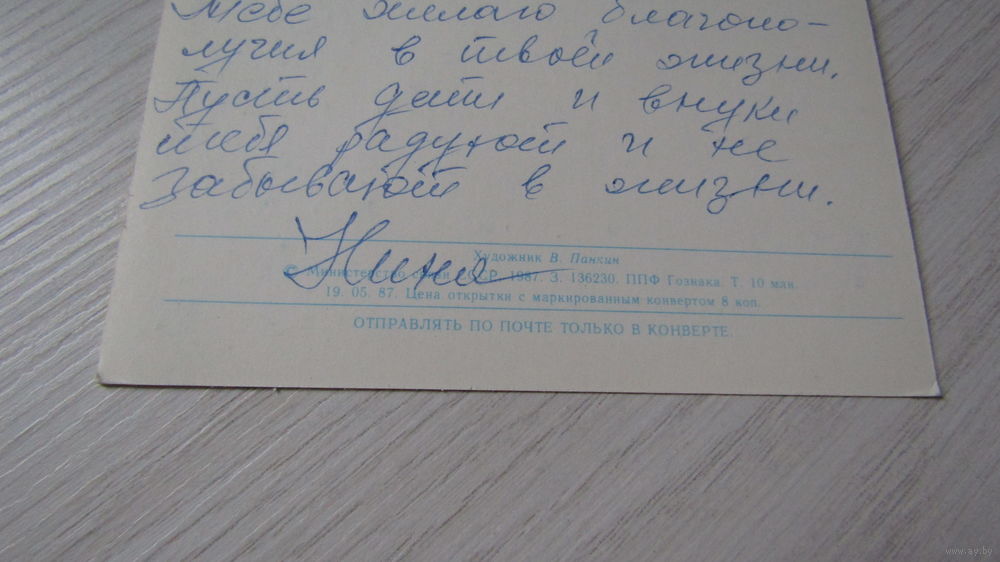 Тебе желаю благопо-
лучия в твоей жизни.
Пусть дети и внуки
тебя радуют и не
забывают в жизни.
Нина
Художник В. Панхин
© Министерство связи СССР. 1987. З. 136230. ППФ Гознака. Т. 10 млн.
19. 05. 87. Цена открытки с маркированным конвертом 8 коп.
ОТПРАВЛЯТЬ ПО ПОЧТЕ ТОЛЬКО В КОНВЕРТЕ.
www.ay.by